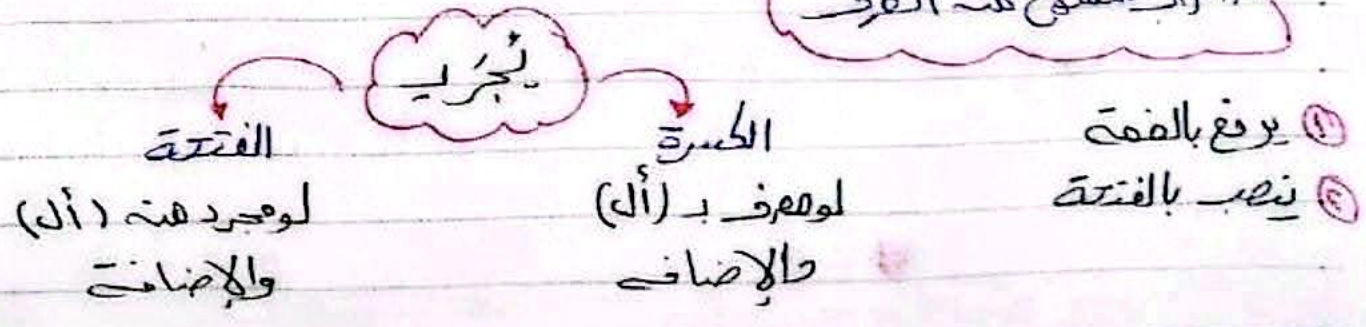 من الصرف
يُجَرّ بـ
① يرفع بالضمة
② ينصب بالفتحة
الكسرة
لو معرف بـ (أل)
والإضافه
الفتحة
لو مجرد من (أل)
والإضافة